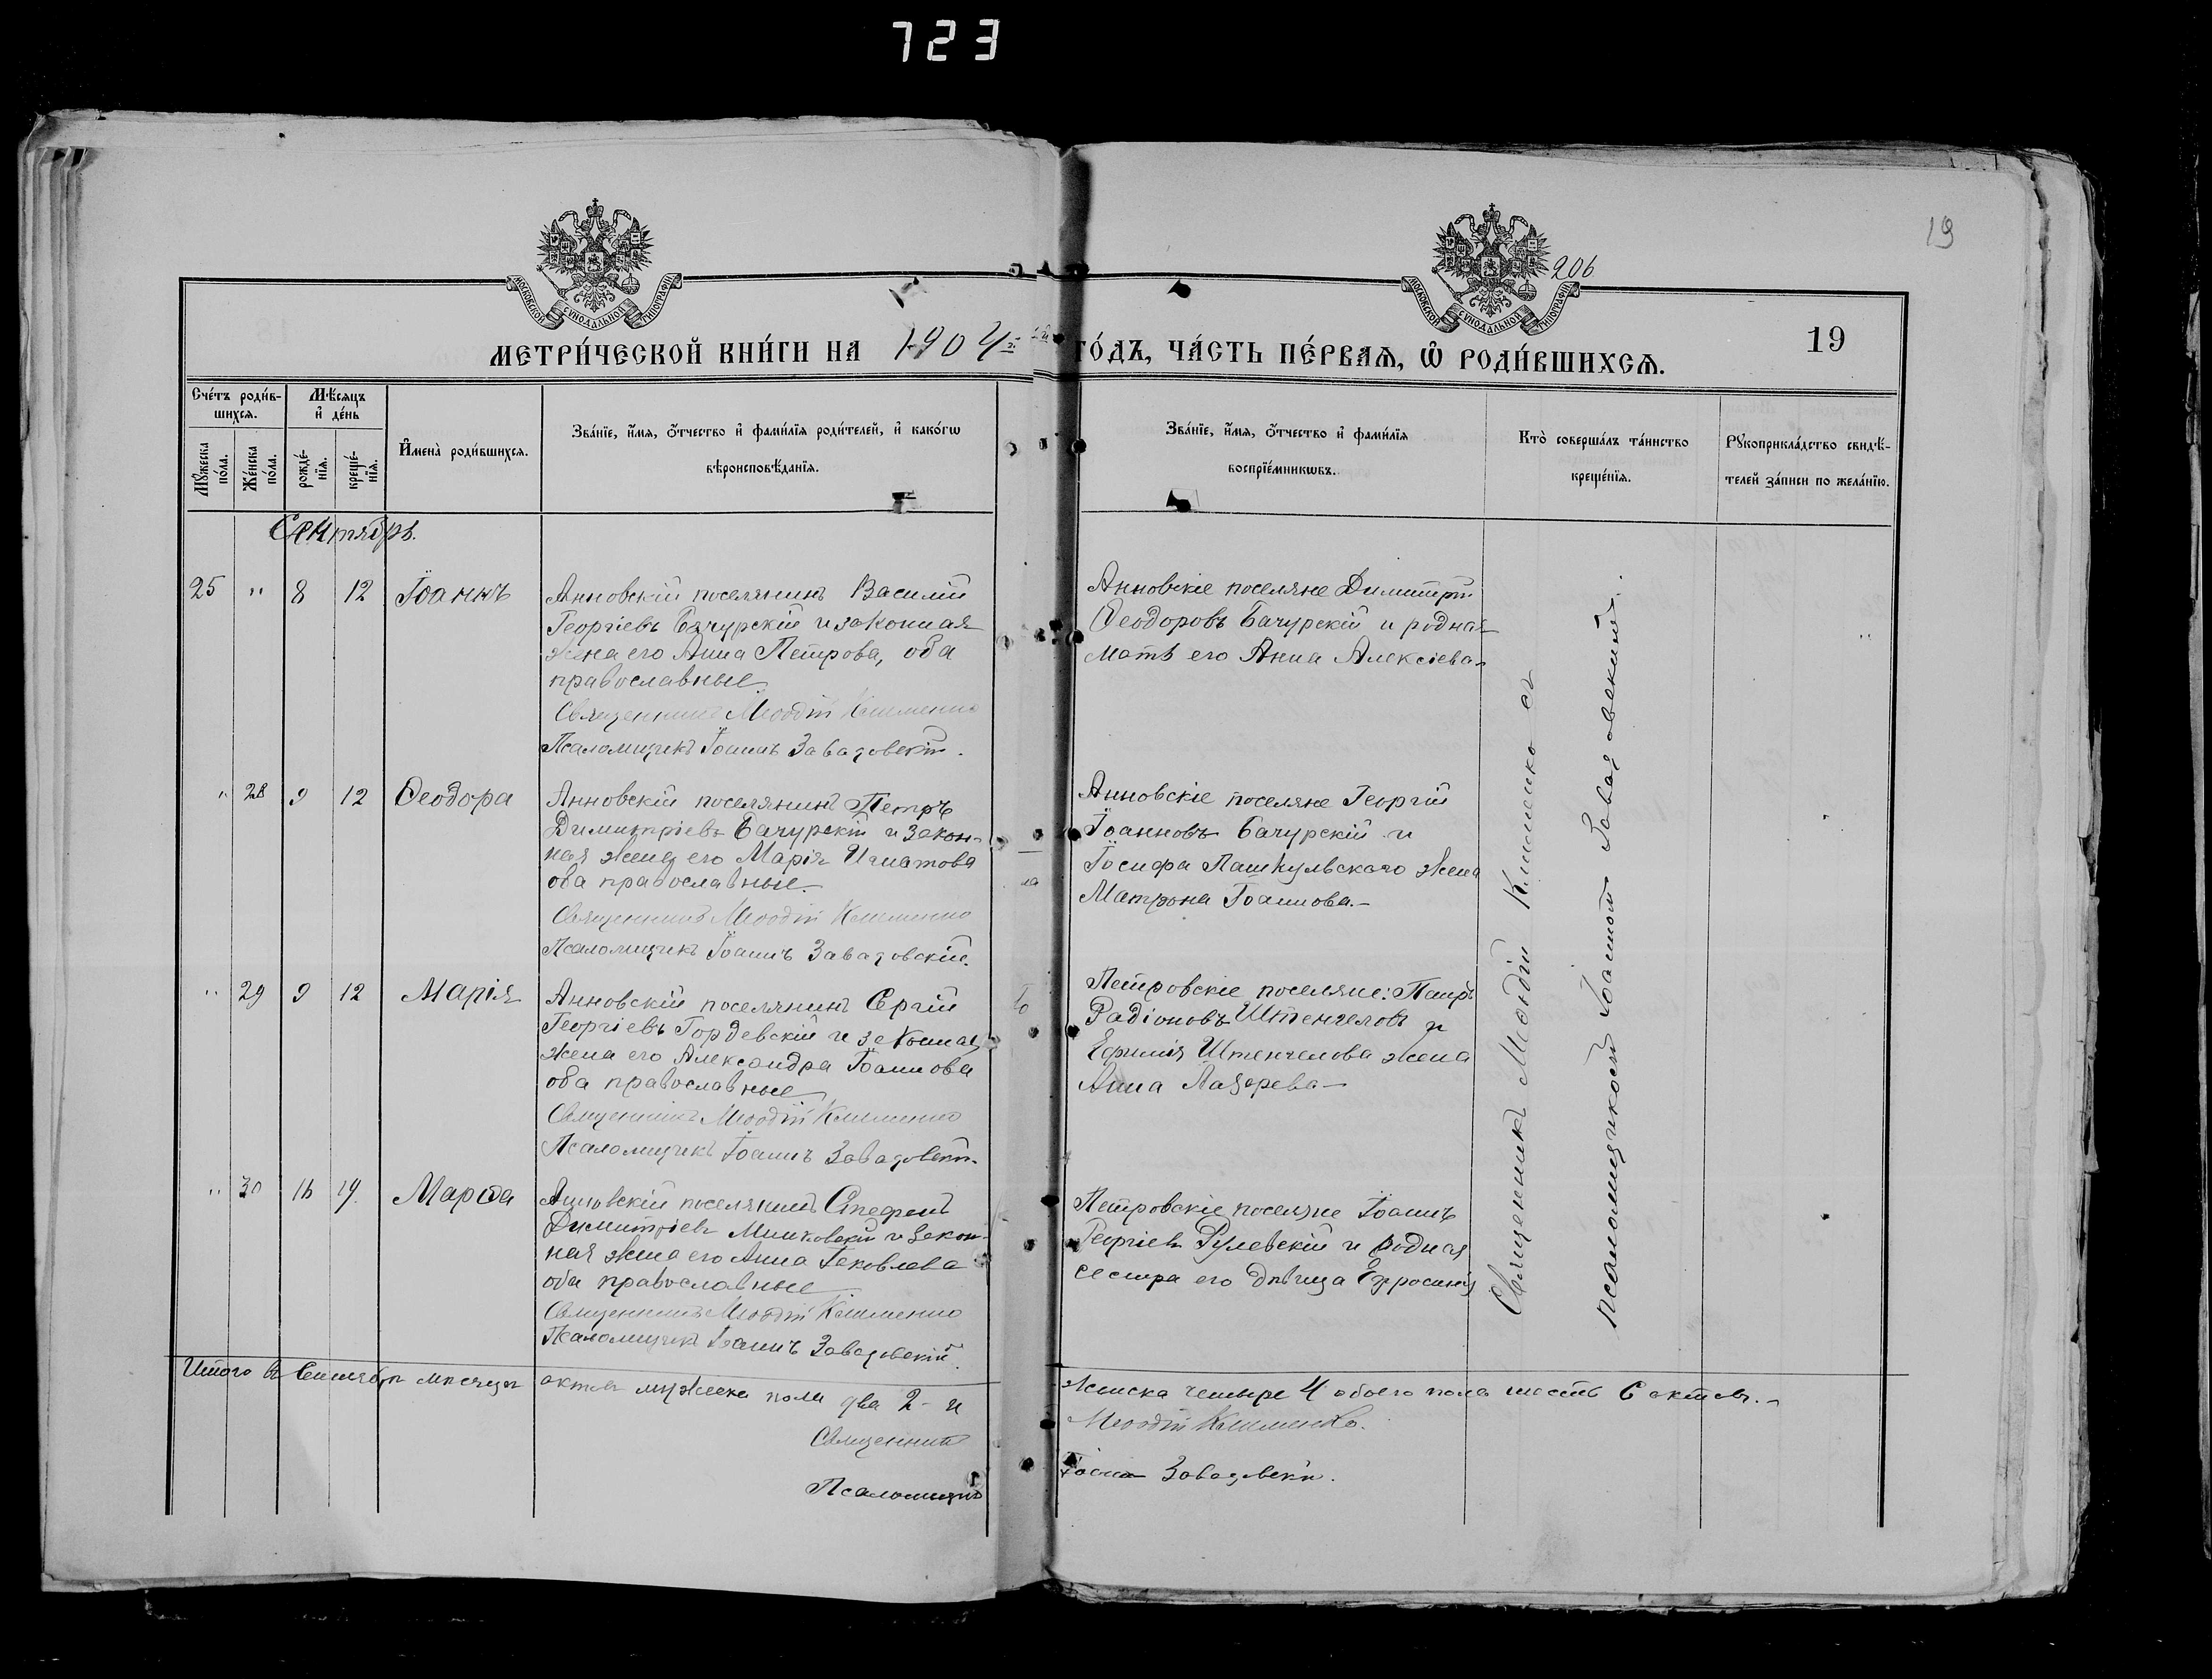 723
19
206
МОСКОВСКОЙ СѴНОДАЛЬНОЙ ТИПОГРАФІИ
МОСКОВСКОЙ СѴНОДАЛЬНОЙ ТИПОГРАФІИ
МЕТРИ́ЧЕСКОЙ КНИ́ГИ НА 1904й
ГО́ДЪ, ЧА́СТЬ ПЕ́РВАѦ, Ѡ҆ РОДИ́ВШИХСѦ.
19
Сче́тъ роди́в-
шихсѧ.
Мꙋ́жеска по́ла.
Же́нска по́ла.
Мѣ́сѧцъ
и҆ де́нь
рожде́-
нїѧ.
креще́-
нїѧ.
И҆мена̀ роди́вшихсѧ.
Зва́нїе, и҆́мѧ, ѻ҆́тчество и҆ фами́лїѧ роди́телей, и҆ како́гѡ
вѣроисповѣ́данїѧ.
Зва́нїе, и҆́мѧ, ѻ҆́тчество и҆ фами́лїѧ
воспрїе́мникѡвъ.
Кто̀ соверша́лъ та́инство
креще́нїѧ.
Рꙋкоприкла́дство свидѣ́-
телей за́писи по жела́нїю.
Сентябрь.
25 " 8 12 Іоаннъ
Анновскій поселянинъ Василій
Георгіевъ Бачурскій и законная
жена его Анна Петрова, оба
православные.
Священникъ Меѳодій Клименко
Псаломщикъ Іоаннъ Завадовскій.
Анновскіе поселяне Димитрій
Ѳеодоровъ Бачурскій и родная
мать его Анна Алексіева
" 28 9 12 Ѳеодора
Анновскій поселянинъ Петръ
Димитріевъ Бачурскій и закон-
ная жена его Марія Игнатова
оба православные.
Священникъ Меѳодій Клименко
Псаломщикъ Іоаннъ Завадовскій.
Анновскіе поселяне Георгій
Іоанновъ Бачурскій и
Іосифа Пашкульскаго жена
Матрона Іоаннова.
" 29 9 12 Марія
Анновскій поселянинъ Сергій
Георгіевъ Гордевскій и законная
жена его Александра Іоаннова
оба православные
Священникъ Меѳодій Клименко
Псаломщикъ Іоаннъ Завадовскій.
Петровскіе поселяне: Петръ
Радіоновъ Штенгеловъ и
Штенгелова жена
Анна Лазарева
" 30 16 19 Марѳа
Анновскій поселянинъ Стефанъ
Димитріевъ и закон-
ная жена его Анна Іаковлева
оба православные
Священникъ Меѳодій Клименко
Псаломщикъ Іоаннъ Завадовскій.
Петровскіе поселяне Іоаннъ
Георгіевъ Рулевскій и родная
сестра его дѣвица Ефросинія
Священникъ Меѳодій Клименко съ
псаломщикомъ Іоанномъ Завадовскимъ.
Итого въ Сентябрѣ мѣсяцѣ актовъ мужеска пола два 2 и
женска четыре 4 обоего пола шесть 6 актовъ.
Священникъ Меѳодій Клименко.
Псаломщикъ Іоаннъ Завадовскій.